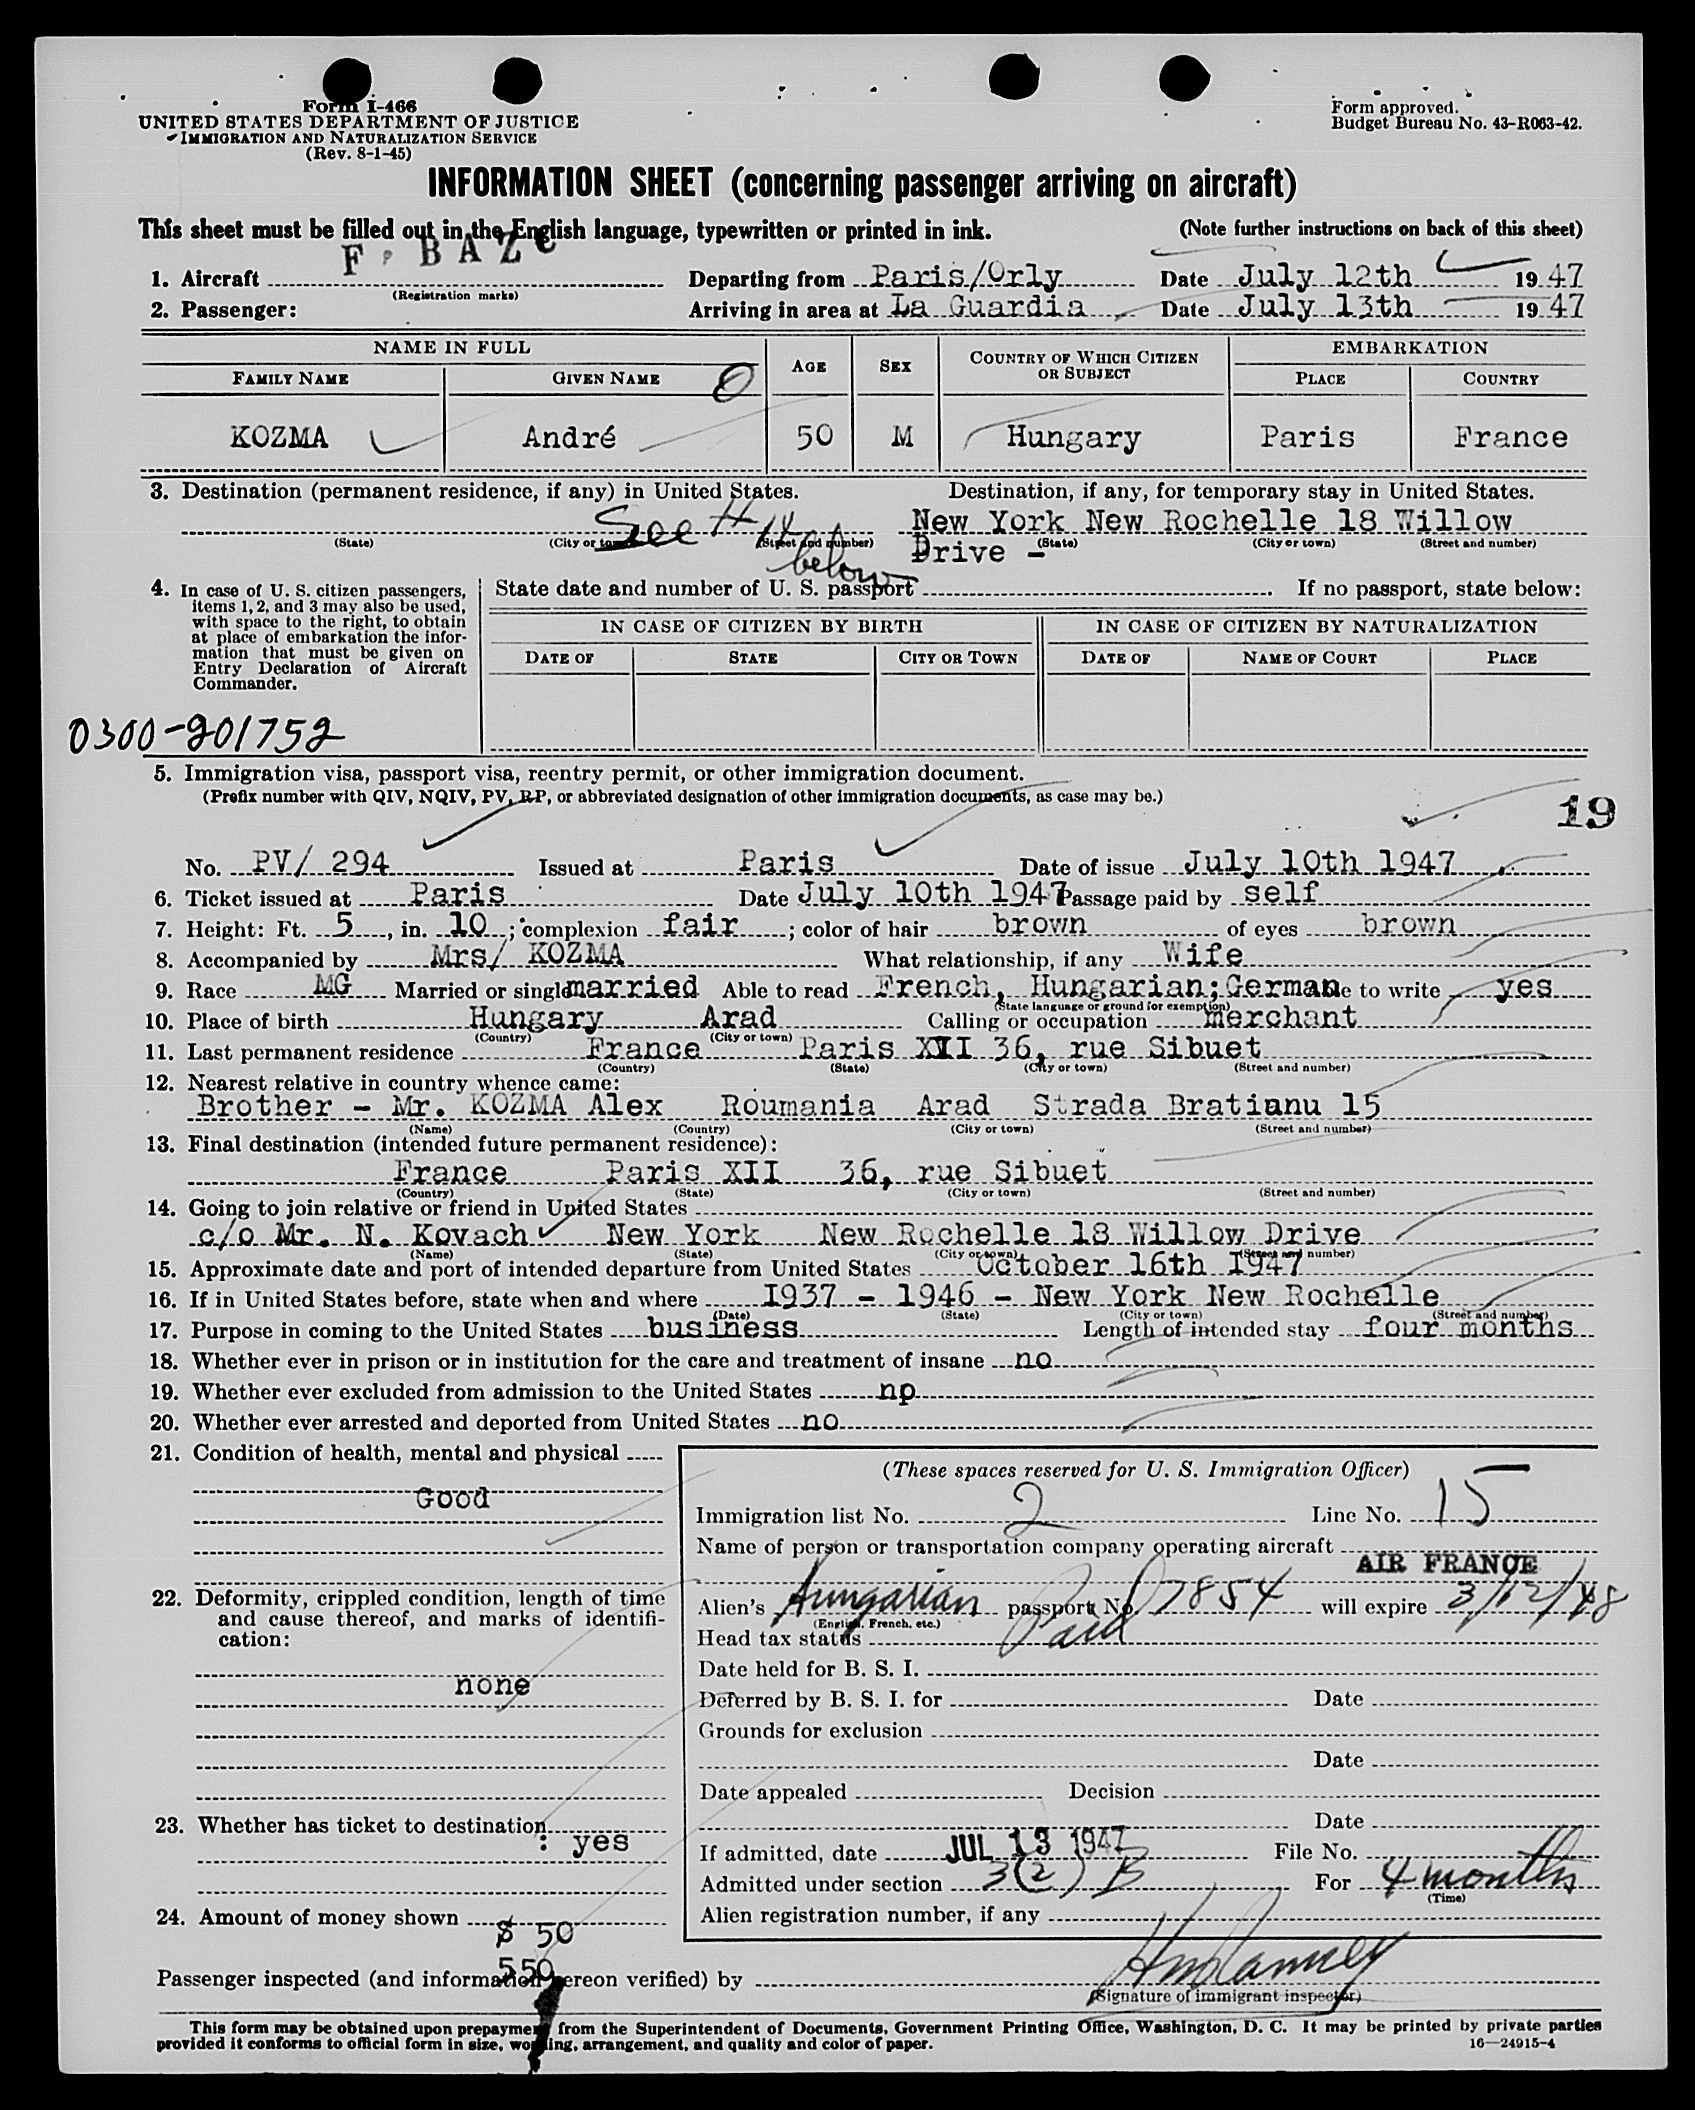 Form I-466
UNITED STATES DEPARTMENT OF JUSTICE
IMMIGRATION AND NATURALIZATION SERVICE
(Rev. 8-1-45)
Form approved.
Budget Bureau No. 43-R063-42.
INFORMATION SHEET (concerning passenger arriving on aircraft)
This sheet must be filled out in the English language, typewritten or printed in ink. (Note further instructions on back of this sheet)
1. Aircraft F. BAZC Departing from Paris/Orly Date July 12th 19 47
(Registration marks)
2. Passenger: Arriving in area at La Guardia Date July 13th 19 47
NAME IN FULL AGE SEX COUNTRY OF WHICH CITIZEN OR SUBJECT EMBARKATION
FAMILY NAME GIVEN NAME PLACE COUNTRY
KOZMA André 50 M Hungary Paris France
3. Destination (permanent residence, if any) in United States. Destination, if any, for temporary stay in United States.
See # 14 below New York New Rochelle 18 Willow
(State) (City or town) (Street and number) Drive - (State) (City or town) (Street and number)
4. In case of U. S. citizen passengers, items 1, 2, and 3 may also be used, with space to the right, to obtain at place of embarkation the information that must be given on Entry Declaration of Aircraft Commander.
State date and number of U. S. passport . If no passport, state below:
IN CASE OF CITIZEN BY BIRTH IN CASE OF CITIZEN BY NATURALIZATION
DATE OF STATE CITY OR TOWN DATE OF NAME OF COURT PLACE
0300-201752
5. Immigration visa, passport visa, reentry permit, or other immigration document.
(Prefix number with QIV, NQIV, PV, RP, or abbreviated designation of other immigration documents, as case may be.)
19
No. PV/ 294 Issued at Paris Date of issue July 10th 1947
6. Ticket issued at Paris Date July 10th 1947 Passage paid by self
7. Height: Ft. 5, in. 10; complexion fair; color of hair brown of eyes brown
8. Accompanied by Mrs/ KOZMA What relationship, if any Wife
9. Race MG Married or single married Able to read French, Hungarian; German Able to write yes
(State language or ground for exemption)
10. Place of birth Hungary Arad Calling or occupation merchant
(Country) (City or town)
11. Last permanent residence France Paris XII 36, rue Sibuet
(Country) (State) (City or town) (Street and number)
12. Nearest relative in country whence came:
Brother - Mr. KOZMA Alex Roumania Arad Strada Bratianu 15
(Name) (Country) (City or town) (Street and number)
13. Final destination (intended future permanent residence):
France Paris XII 36, rue Sibuet
(Country) (State) (City or town) (Street and number)
14. Going to join relative or friend in United States
c/o Mr. N. Kovach New York New Rochelle 18 Willow Drive
(Name) (State) (City or town) (Street and number)
15. Approximate date and port of intended departure from United States October 16th 1947
16. If in United States before, state when and where 1937 - 1946 - New York New Rochelle
(Date) (State) (City or town) (Street and number)
17. Purpose in coming to the United States business Length of intended stay four months
18. Whether ever in prison or in institution for the care and treatment of insane no
19. Whether ever excluded from admission to the United States np
20. Whether ever arrested and deported from United States no
21. Condition of health, mental and physical
Good
22. Deformity, crippled condition, length of time and cause thereof, and marks of identification:
none
23. Whether has ticket to destination
: yes
24. Amount of money shown $ 50
550
(These spaces reserved for U. S. Immigration Officer)
Immigration list No. 2 Line No. 15
Name of person or transportation company operating aircraft
AIR FRANCE
Alien's Hungarian passport No. 7854 will expire 3/12/48
(English, French, etc.)
Head tax status Paid
Date held for B. S. I.
Deferred by B. S. I. for Date
Grounds for exclusion
Date
Date appealed Decision
Date
If admitted, date JUL 13 1947 File No.
Admitted under section 3(2) B For 4 months
(Time)
Alien registration number, if any
Passenger inspected (and information hereon verified) by
(Signature of immigrant inspector)
This form may be obtained upon prepayment from the Superintendent of Documents, Government Printing Office, Washington, D. C. It may be printed by private parties
provided it conforms to official form in size, wording, arrangement, and quality and color of paper. 16—24915-4